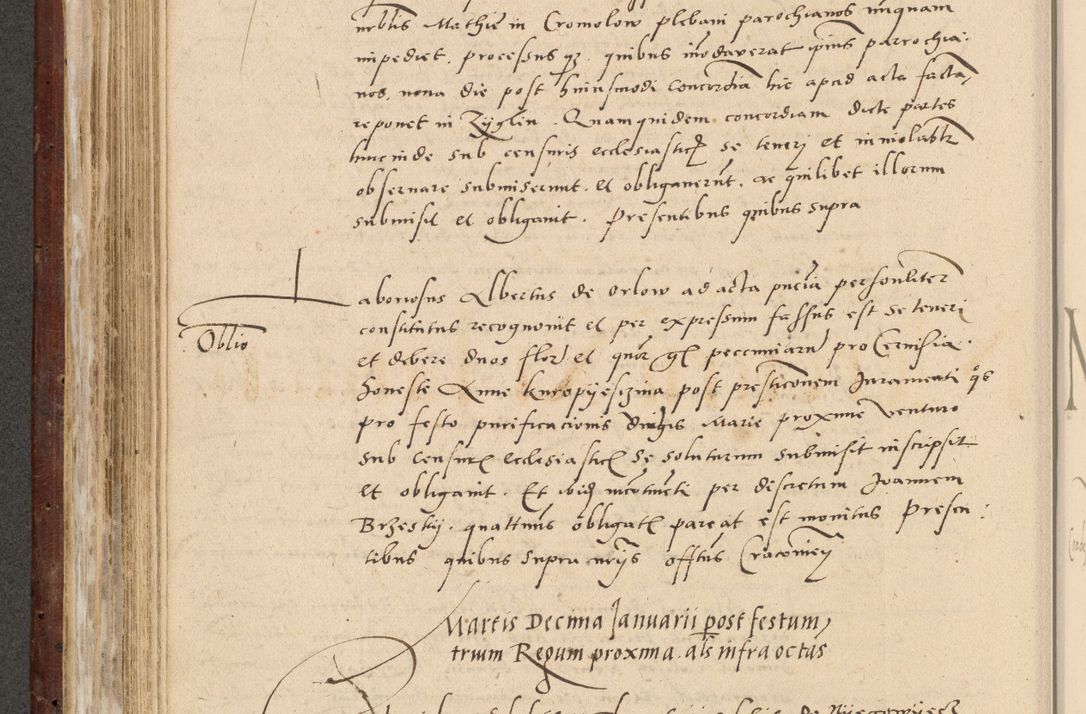 nrblis Mathie in Cromolow plebani parochianos nunquam
impediet. processus q3 quibus inodaverat ipius parrochia-
nos, nona die post huiusmodi concordia hic apud acta facta,
reponet in Zyglin. Quamquidem concordiam dicte partes
hincinde sub censuris ecclesiastic se teneri et inviolabtr
observare submiserunt et obligaverut. ac quilibet illorum
submisit et obligavit. Presentibus quibus supra
Laboriosus Albertus de Orlow ad acta pncia personliter
Oblio
constitutus recognovit et per expressum fassus est se teneri
et debere duos flor et quor gr pecuniaru pro Cervisia
honeste Anne Kuropyeszina post presticonem Juramenti qs
pro festo purificacionis Virginis Marie proxime venturo
sub censur ecclesiastic se soluturum submisit inscripsit
et obligavit. Et ibid incotineti per discretum Joannem
Brzesky. quattinus obligat pareat est monitus Presen-
tibus quibus supra curijs offtus Cracovien
Martis Decima Januarii post festum
trium Regum proxima. als infra octas